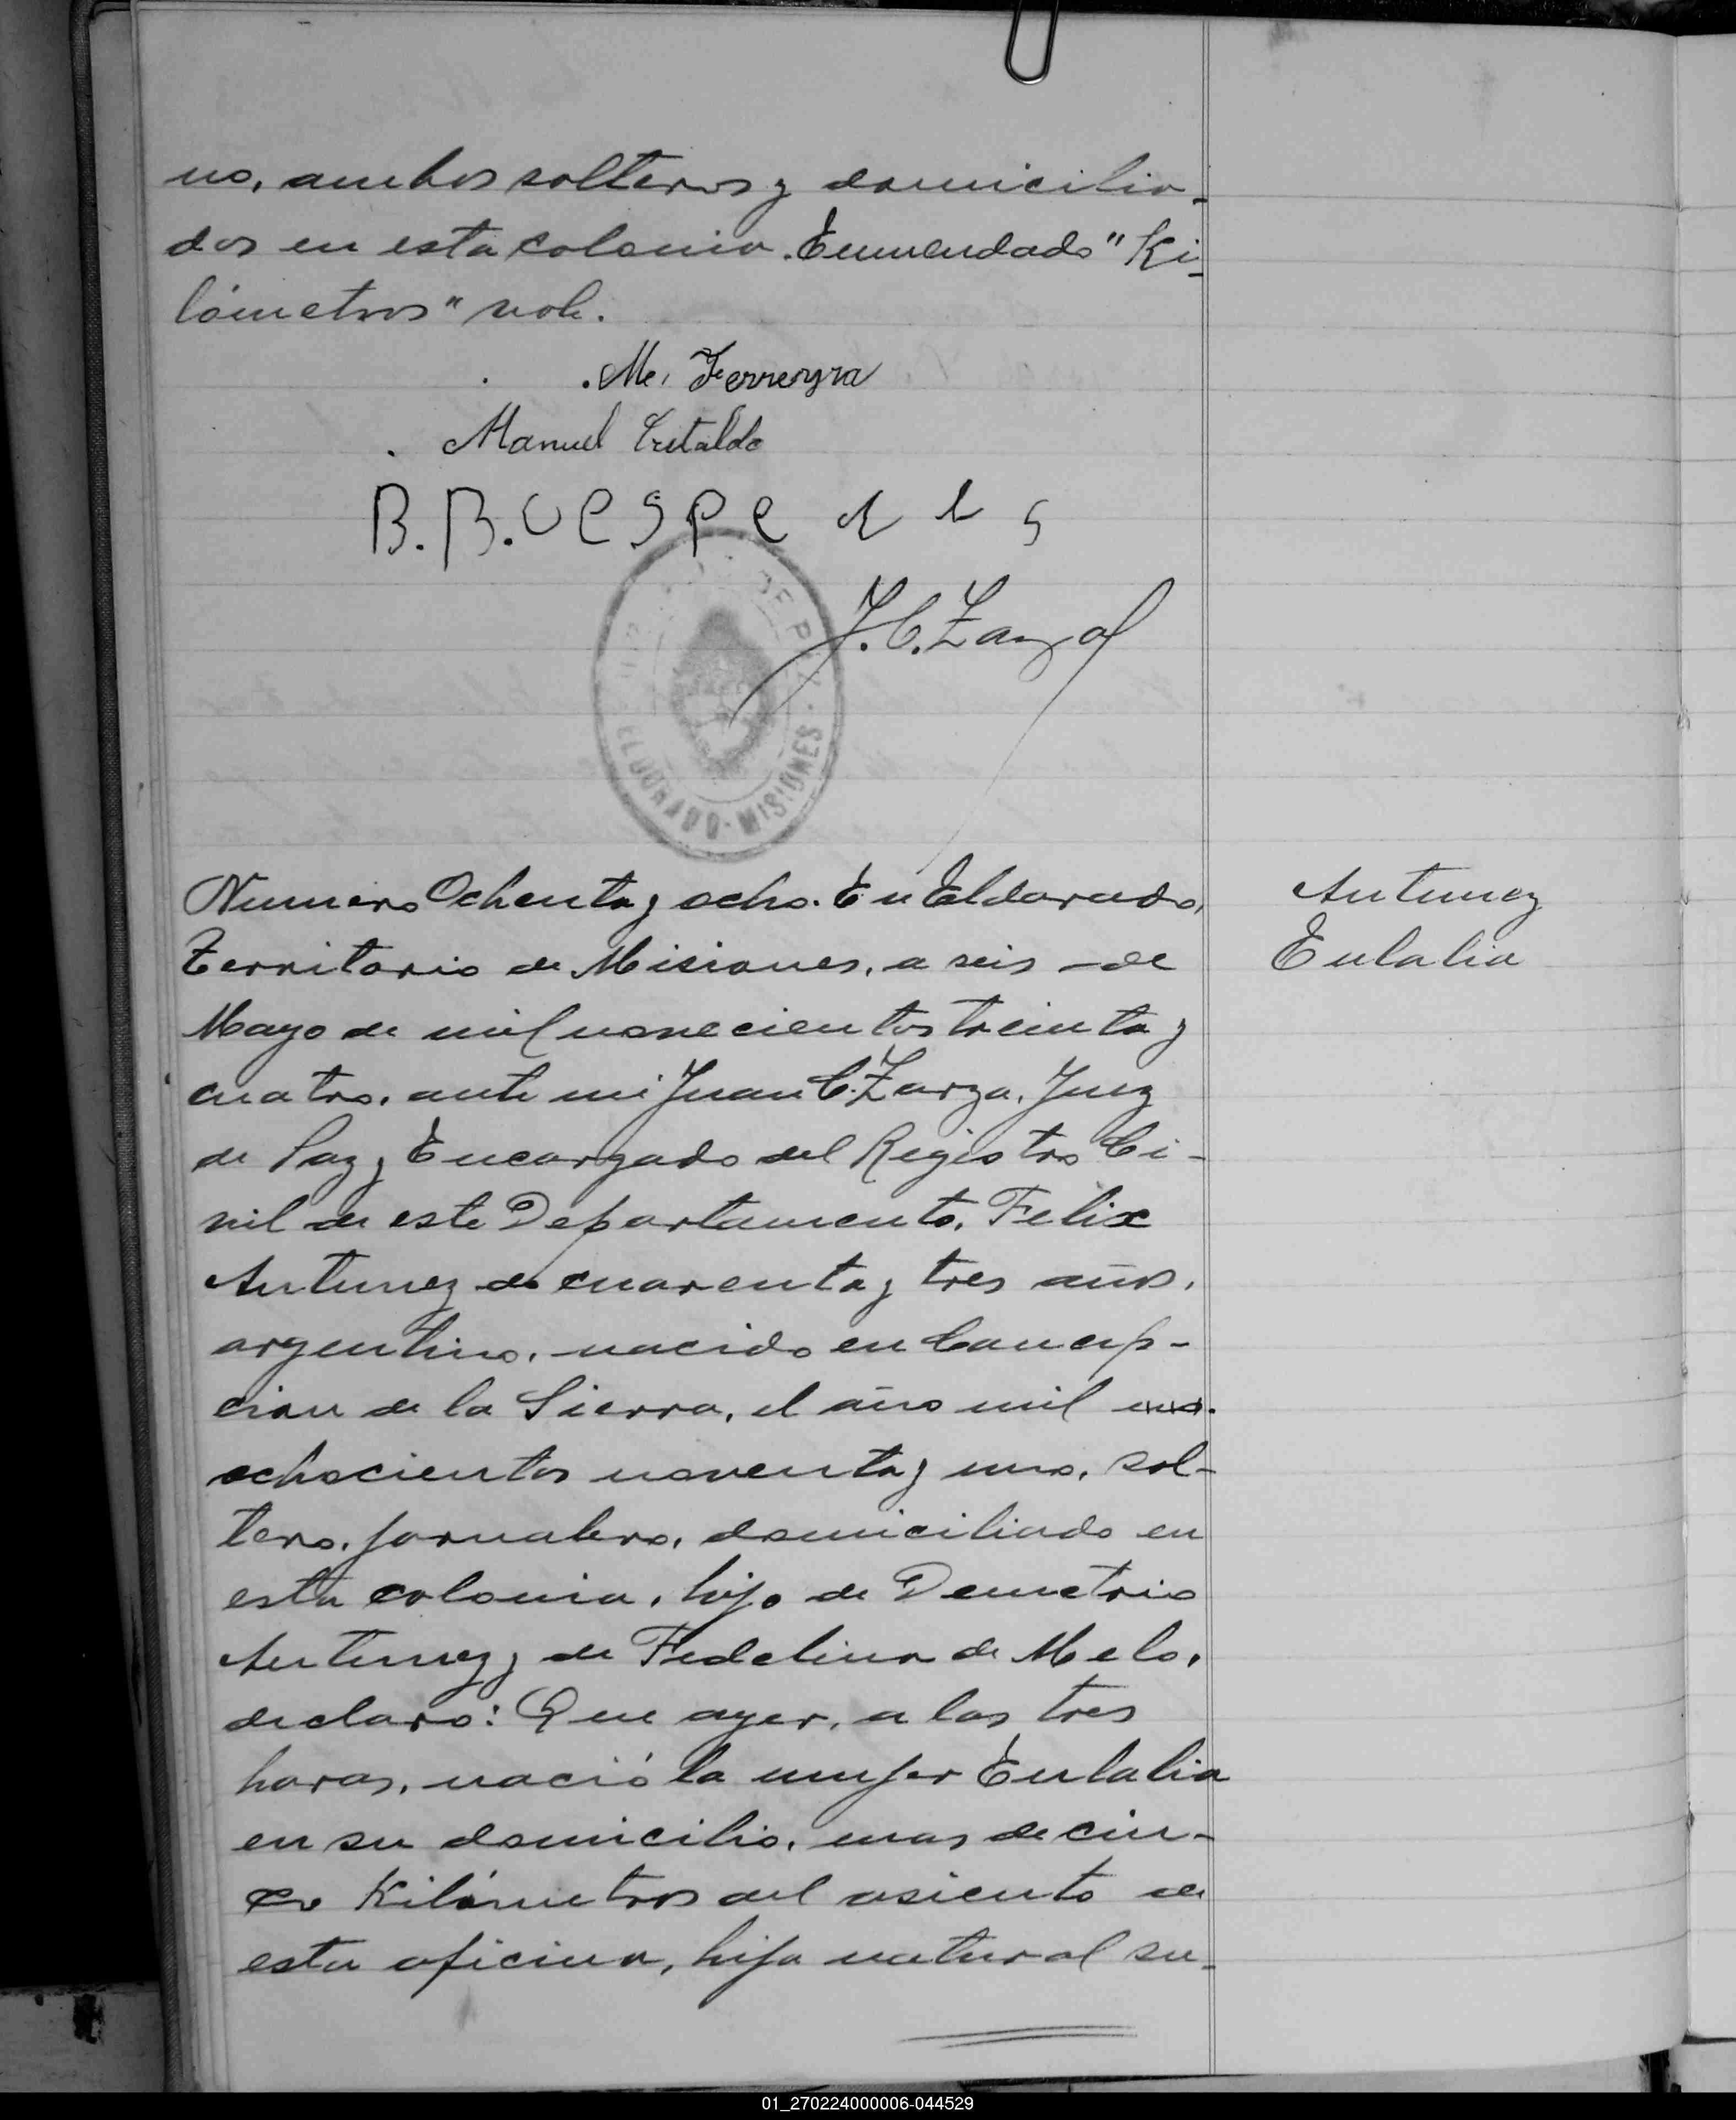 no, ambos solteros y domicilia-
dos en esta colonia. Enmendado "Ki-
lómetros" vale.
M. Ferreyra
Manuel Cristaldo
B. B. Cespedes
J. C. Zarza
ELDORADO - MISIONES
Numero Ochenta y ocho. En Eldorado,
Territorio de Misiones, a seis - de
Mayo de mil novecientos treinta y
cuatro, ante mi Juan C. Zarza, Juez
de Paz y Encargado del Registro Ci-
vil de este Departamento, Felix
Antunez de cuarenta y tres años,
argentino, nacido en Concep-
cion de la Sierra, el año mil
ochocientos noventa y uno, sol-
tero, jornalero, domiciliado en
esta colonia, hijo de Demetrio
Antunez y de Fidelina de Melo,
declaro: Que ayer, a las tres
horas, nació la mujer Eulalia
en su domicilio, mas de cin-
co Kilómetros del asiento de
esta oficina, hija natural su-
Antunez
Eulalia
01_270224000006-044529